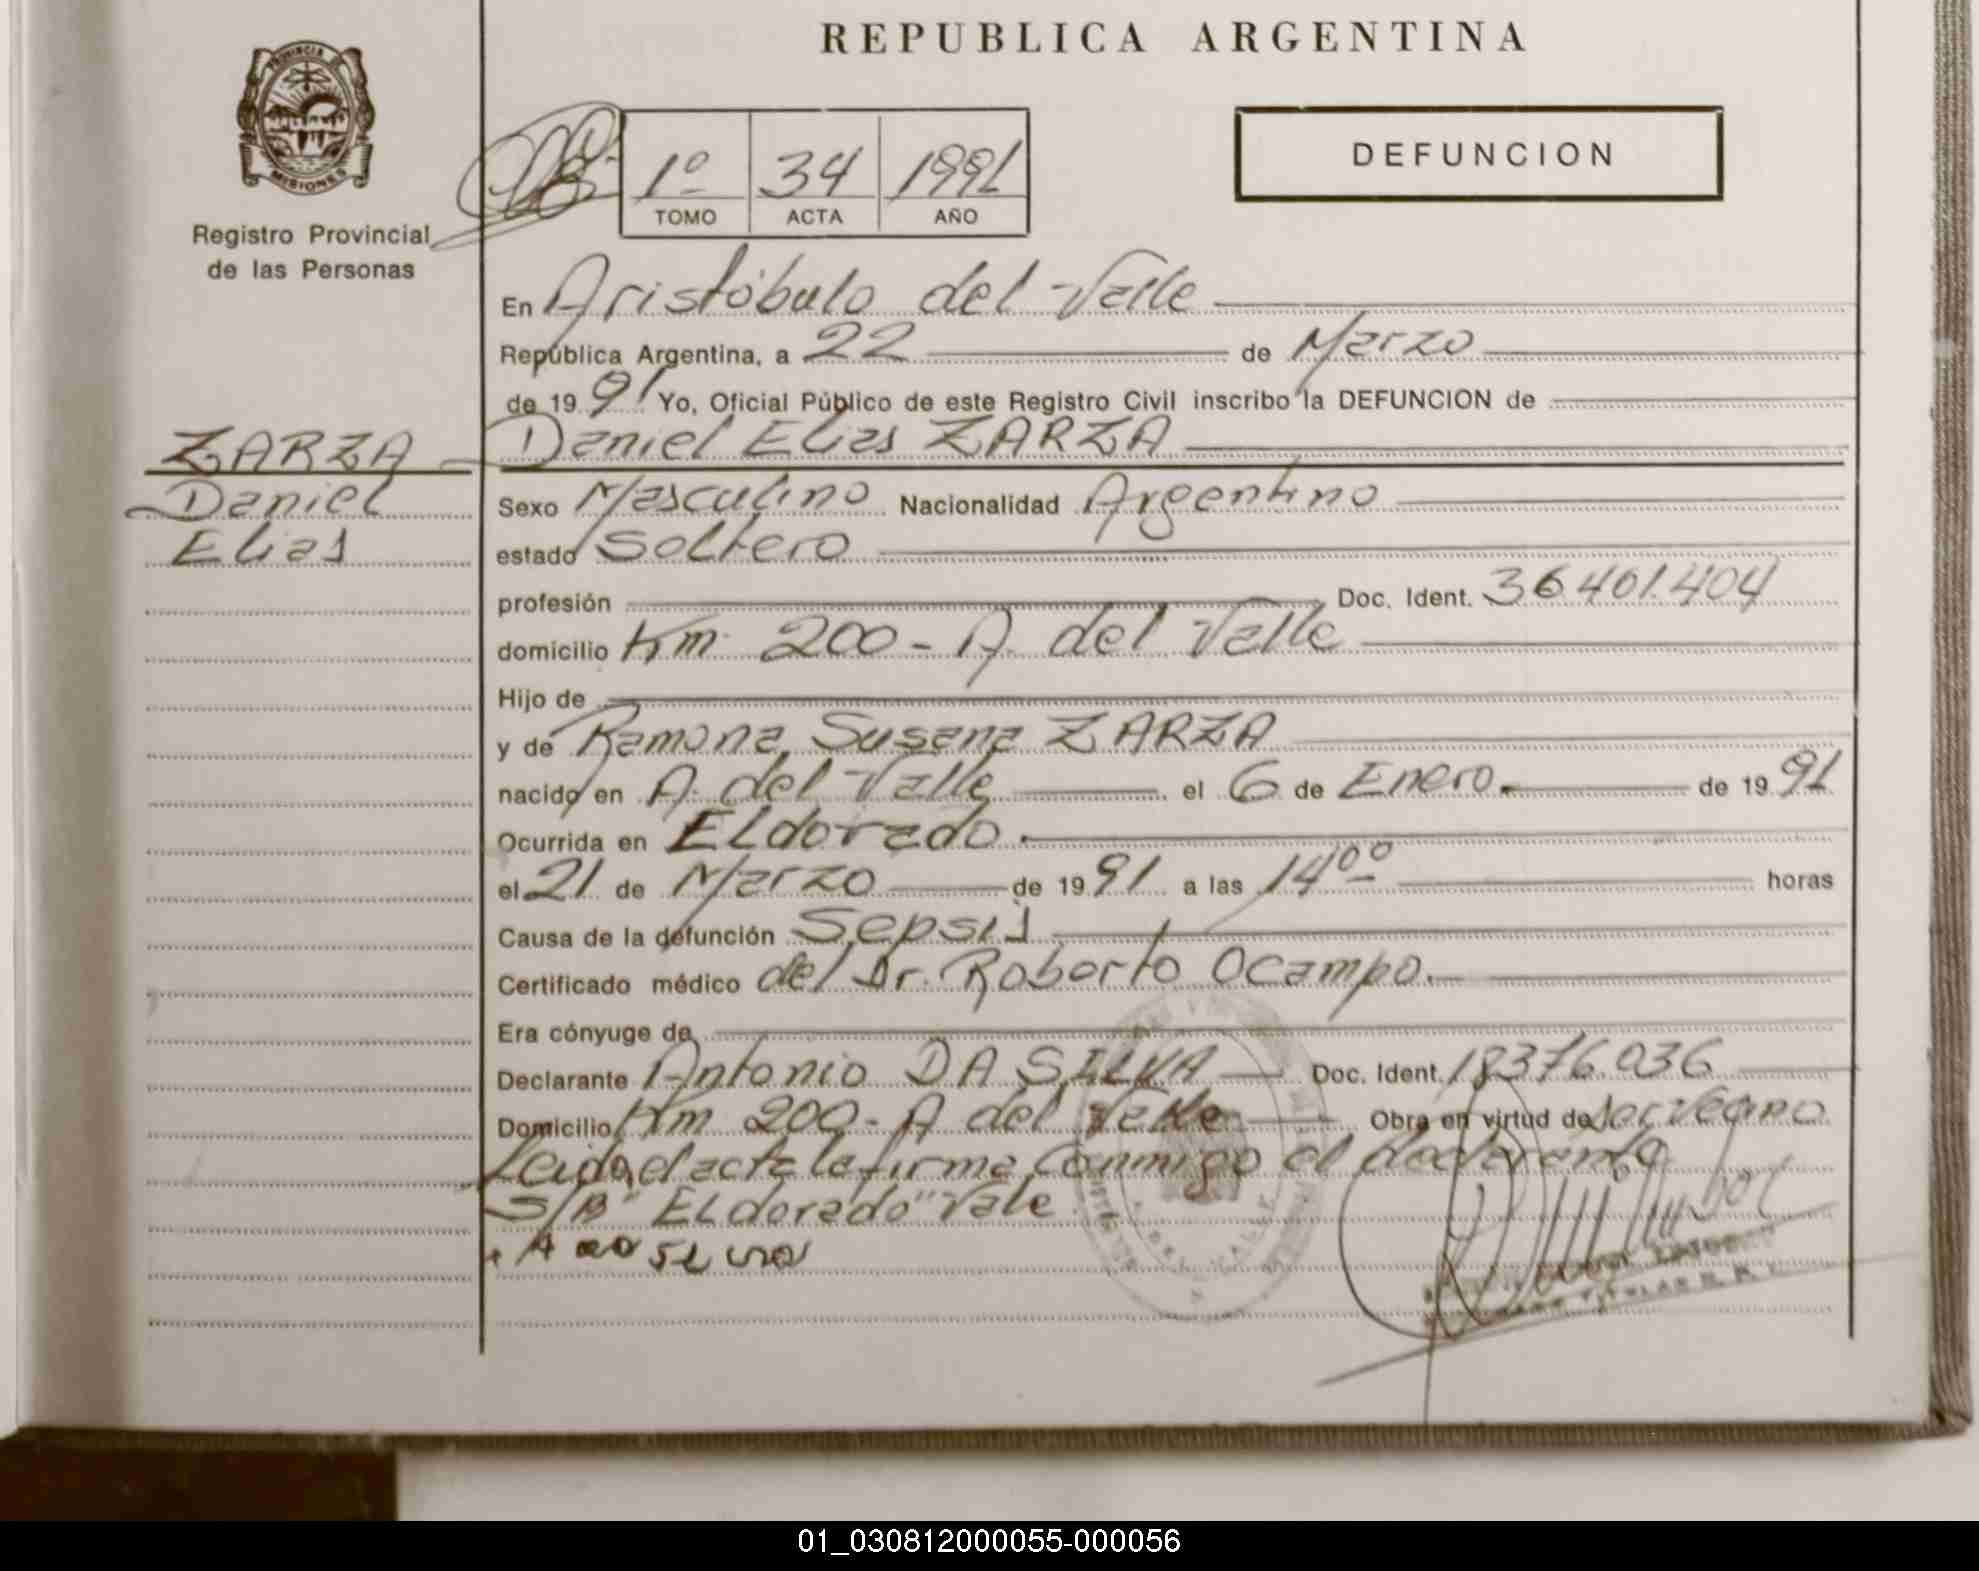 REPUBLICA ARGENTINA
PROVINCIA DE
MISIONES
Registro Provincial
de las Personas
1º 34 1991
TOMO ACTA AÑO
DEFUNCION
En Aristóbulo del Valle
República Argentina, a 22 de Marzo
de 1991 Yo, Oficial Público de este Registro Civil inscribo la DEFUNCION de
ZARZA Daniel Elias ZARZA
Daniel Sexo Masculino Nacionalidad Argentino
Elias estado Soltero
profesión Doc. Ident. 36.401.404
domicilio Km. 200 - A. del Valle
Hijo de
y de Ramona Susana ZARZA
nacido en A. del Valle el 6 de Enero. de 1991
Ocurrida en Eldorado.
el 21 de Marzo de 1991 a las 14ºº horas
Causa de la defunción Sepsis
Certificado médico del Dr. Roberto Ocampo.
Era cónyuge de
Declarante Antonio DA SILVA Doc. Ident. 18376.036
Domicilio Km 200 - A del Valle Obra en virtud de
Leida el acta la firma conmigo el declarante
S/B "Eldorado" Vale
01_030812000055-000056